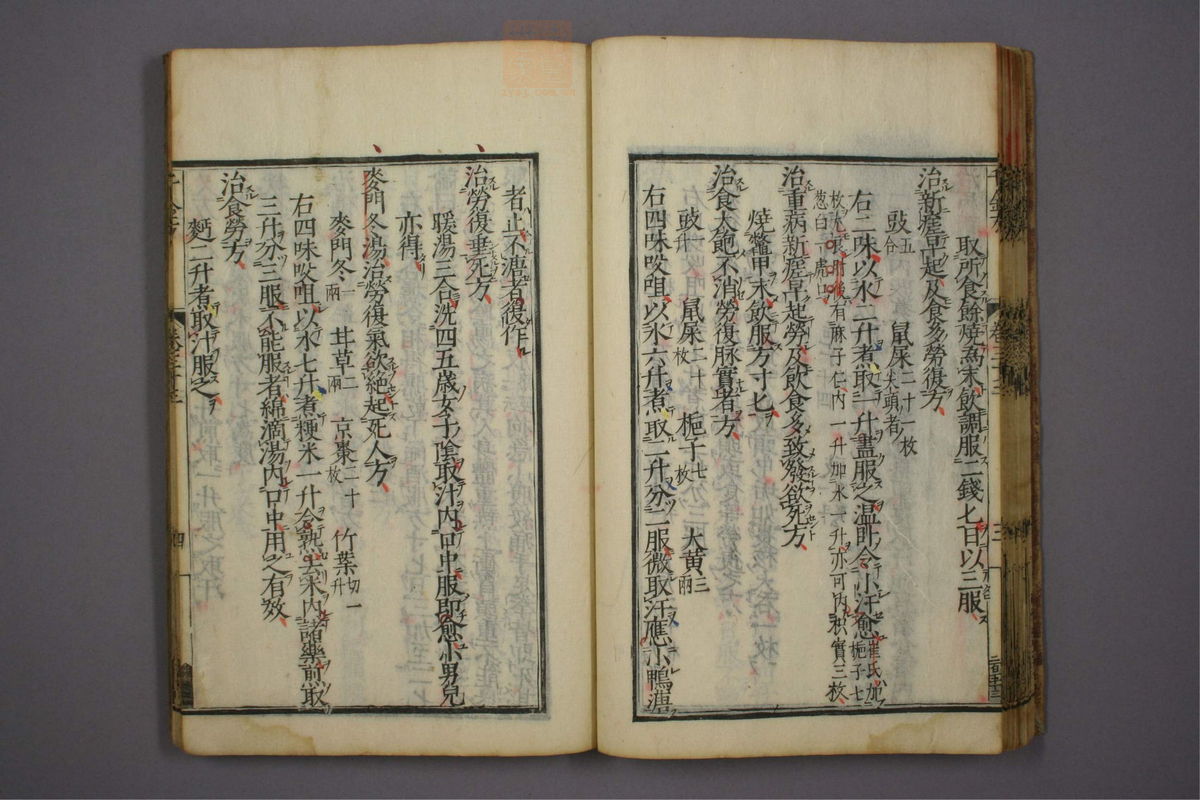 取所食餘燒爲末飲調服二錢匕日以三服
治新瘥早起及食多勞復方
豉五合 鼠屎二十一枚尖頭者
右二味以水二升煮取一升盡服之温臥令小汗愈崔氏加梔子七
枚大良肘後有麻子仁内一升加水一升亦可内枳實三枚
葱白一虎口
治重病新瘥早起勞及飲食多致發欲死方
燒鼈甲末飲服方寸匕
治食大飽不消勞復脉實者方
豉一升 鼠屎二十枚 梔子七枚 大黄三兩
右四味㕮咀以水六升煮取二升分二服微取汗應小鴨溏
者止不溏者復作
治勞復垂死方
暖湯三合洗四五歳女子陰取汁内口中服即愈小男兒
亦得
麥門冬湯治勞復氣欲絶起死人方
麥門冬一兩 甘草二兩 京棗二十枚 竹葉切一升
右四味㕮咀以水七升煮粳米一升令熟去米内諸藥煎取
三升分三服不能服者綿滴湯内口中用之有效
治食勞方
麪二升煮取汁服之
千金方
卷三十三
三
四